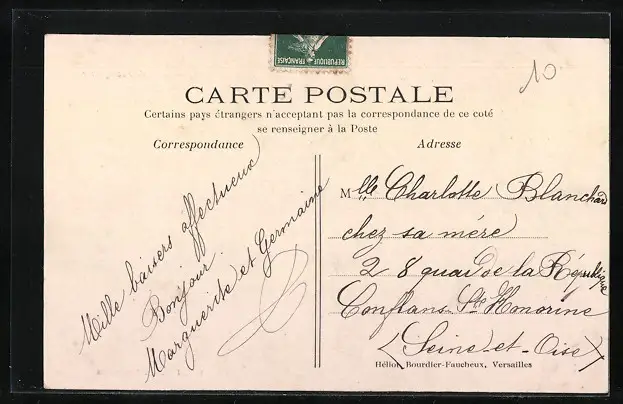 REPUBLIQUE FRANÇAISE
10
CARTE POSTALE
Certains pays étrangers n'acceptant pas la correspondance de ce coté
se renseigner à la Poste
Correspondance
Mille baisers affectueux
Bonjour
Marguerite et Germaine
Adresse
Mlle Charlotte Blanchard
chez sa mére
28 quai de la République
Conflans Ste Honorine
(Seine-et-Oise)
Hélio Bourdier-Faucheux, Versailles